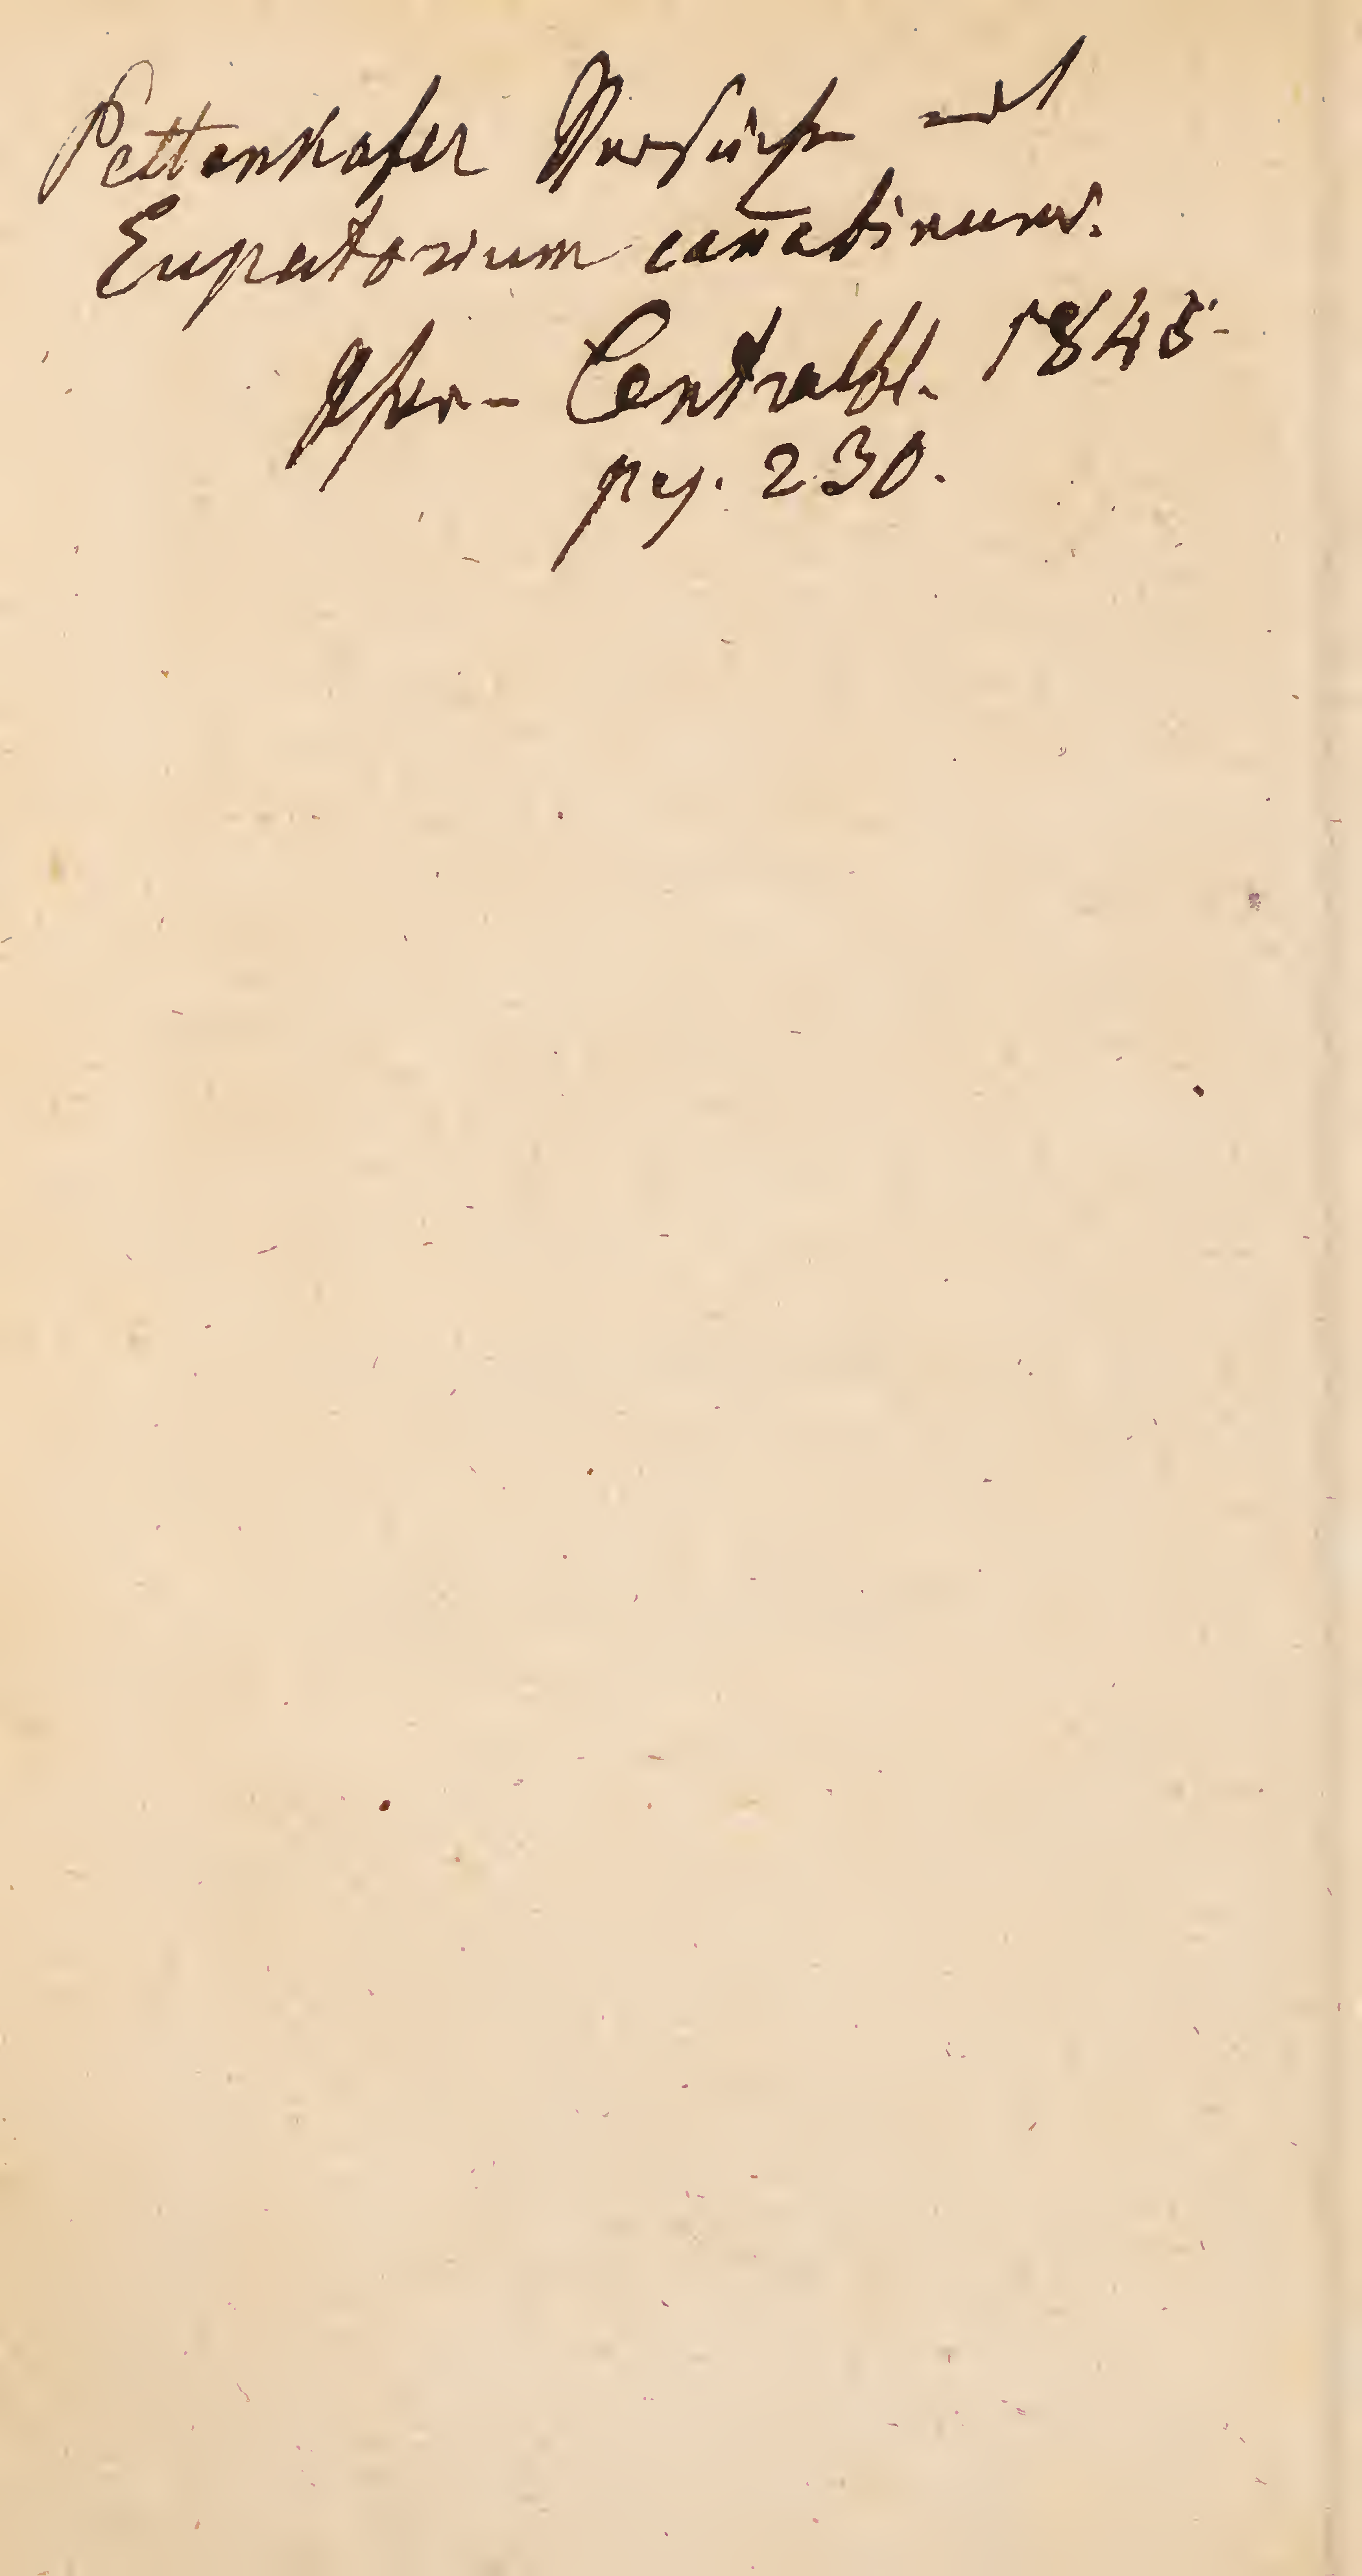 Pettenkofer Versuche mit
Eupatorium canabinum.
Phar- Centralbl. 1845
pag. 230.